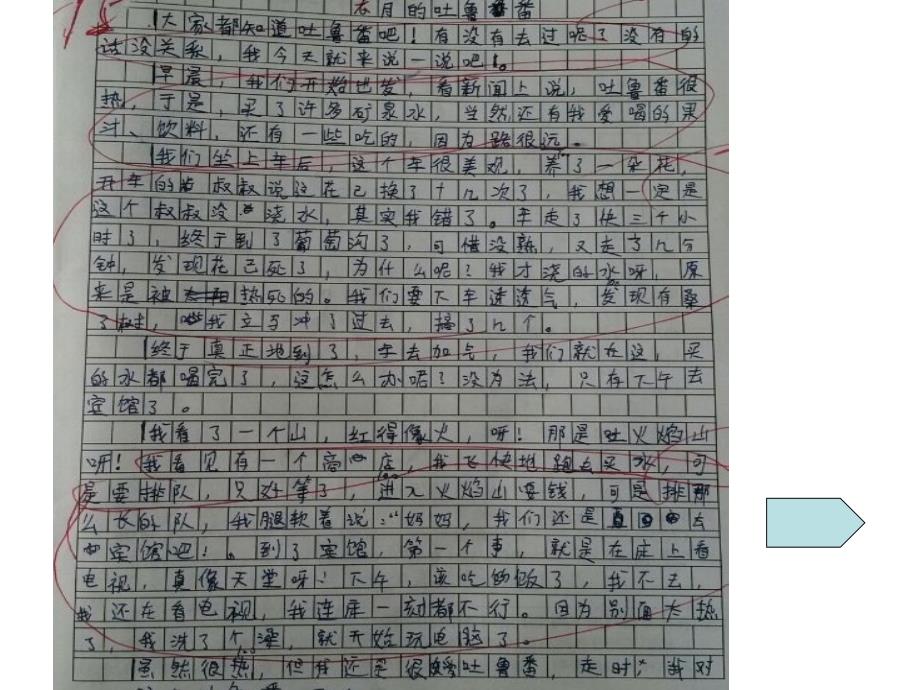 15
月的吐鲁番
大家都知道吐鲁番吧！有没有去过呢？没有的
话没关系，我今天就来说一说吧！。
早晨，我们开始出发，看新闻上说，吐鲁番很
热，于是，买了许多矿泉水，当然还有我爱喝的果
汁、饮料，还有一些吃的，因为路很远。
我们坐上车后，这个车很美观，养了一朵花，
开车的叔叔说这花已换了十几次了，我想一定是
这个叔叔没浇水，其实我错了。车走了快三个小
时了，终于到了葡萄沟了，可惜没熟，又走了几分
钟，发现花已死了，为什么呢？我才浇的水呀，原
来是被热死的。我们要下车透透气，发现有桑
了树，我立马冲了过去，摘了几个。
终于真正地到了，车去加气，我们就在这，买
的水都喝完了，这怎么办呢？没办法，只有下午去
宾馆了。
我看了一个山，红得像火，呀！那是吐火焰山
呀！我看见有一个商店，我飞快地跑去买水，可
是要排队，只好等了，进入火焰山要钱，可是排那
么长的队，我腿软着说：“妈妈，我们还是去
宾馆吧！。到了宾馆，第一个事，就是在床上看
电视，真像天堂呀！下午，该吃的饭了，我不去，
我还在看电视，我连床一刻都不行。因为外面太热
了，我洗了个澡，就开始玩电脑了。
虽然很热，但我还是很吐鲁番，走时，我对